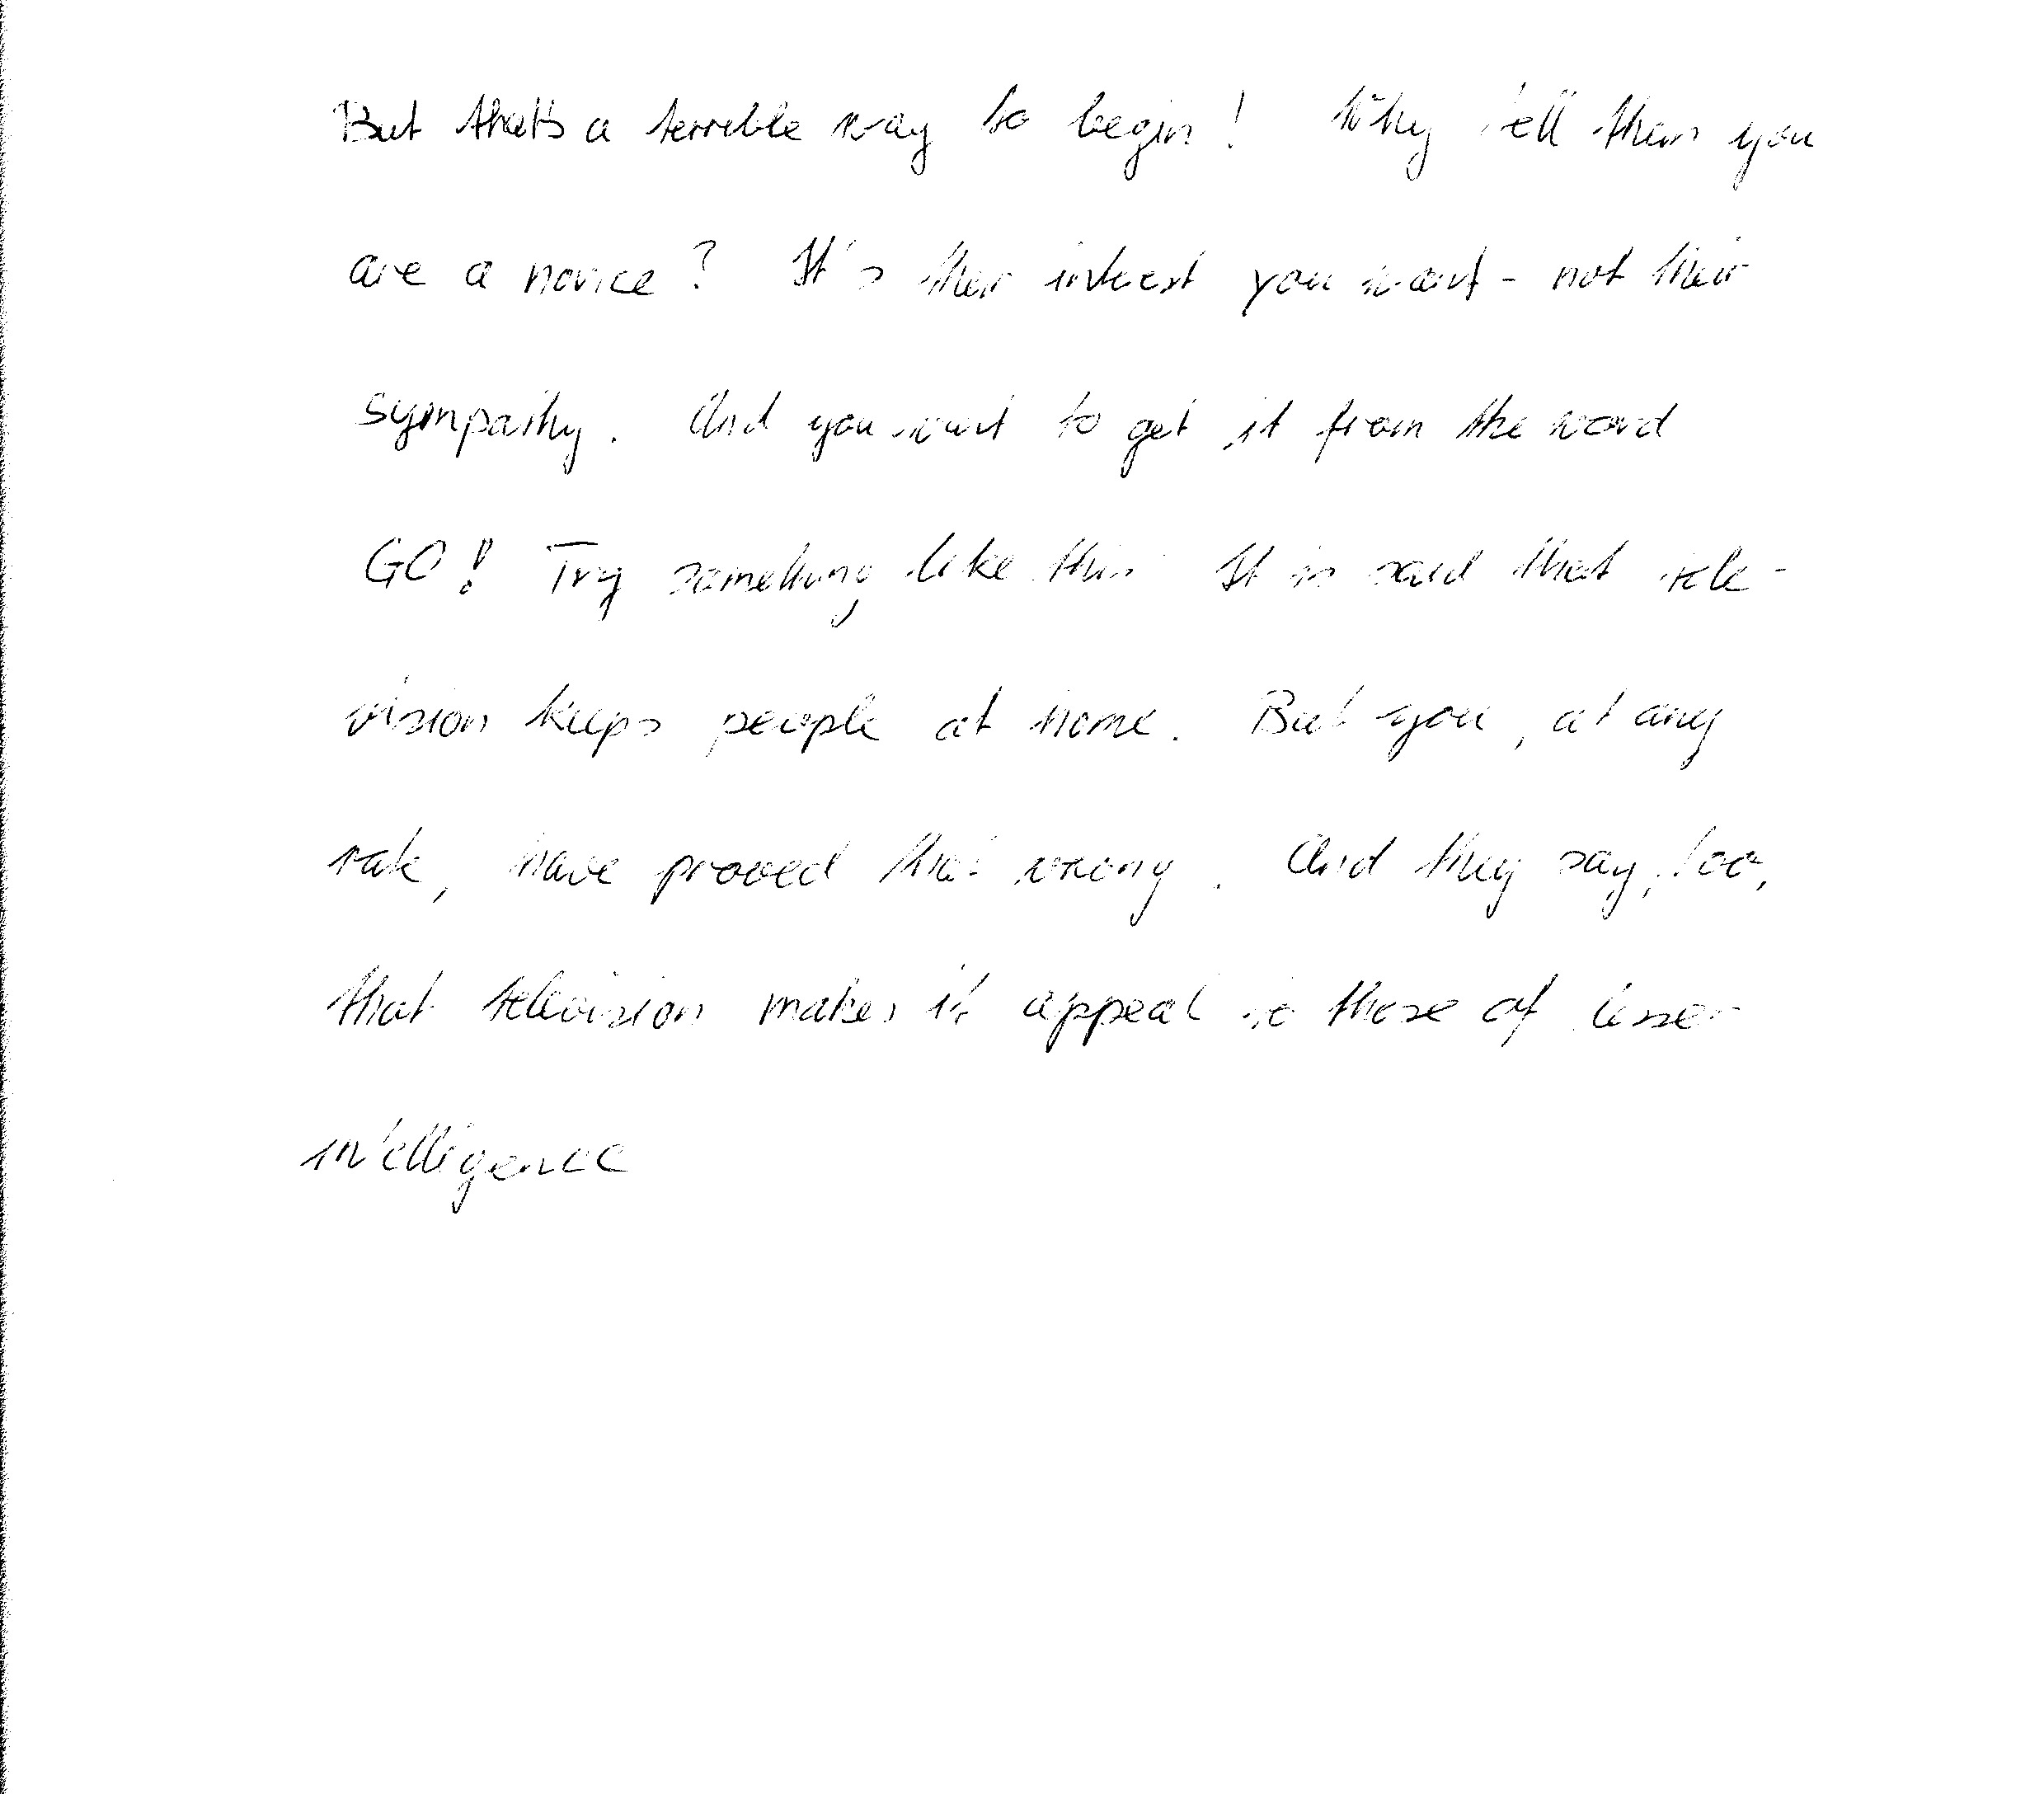 But that's a terrible way to begin! Why tell them you
are a novice? It's their interest you want - not their
sympathy. And you want to get it from the word
GO! Try something like this: It is said that tele-
vision keeps people at home. But you, at any
rate, have proved that wrong. And they say, too,
that television makes its appeal to those of lesser
intelligence